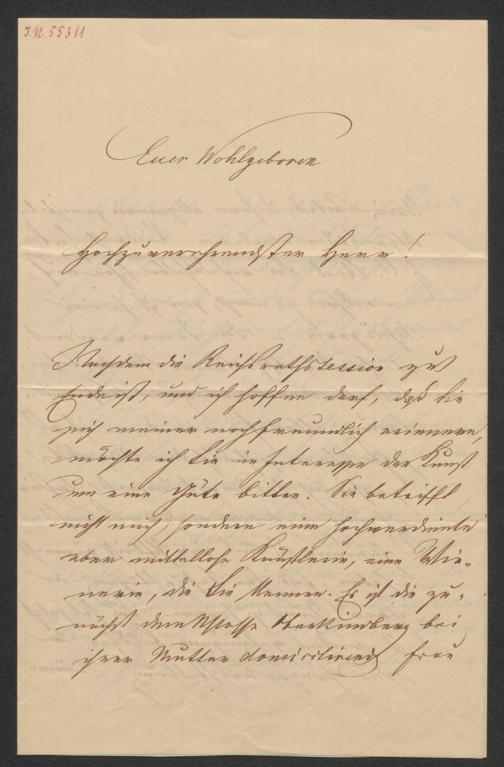 I.N. 55311
Euer Wohlgeboren
Hochzuverehrendster Herr!
Nachdem die Reichsrathssession zu
Ende ist, und ich hoffen darf, daß Sie
sich meiner noch freundlich erinnern,
möchte ich Sie im Interesse der Kunst
um eine Güte bitten. Sie betrifft
nicht mich, sondern eine hochverdiente
aber mittellose Künstlerin, eine Wie-
nerin, die Sie kennen. Es ist die zu-
nächst dem Schlosse bei
ihrer Mutter domicilirende Frau